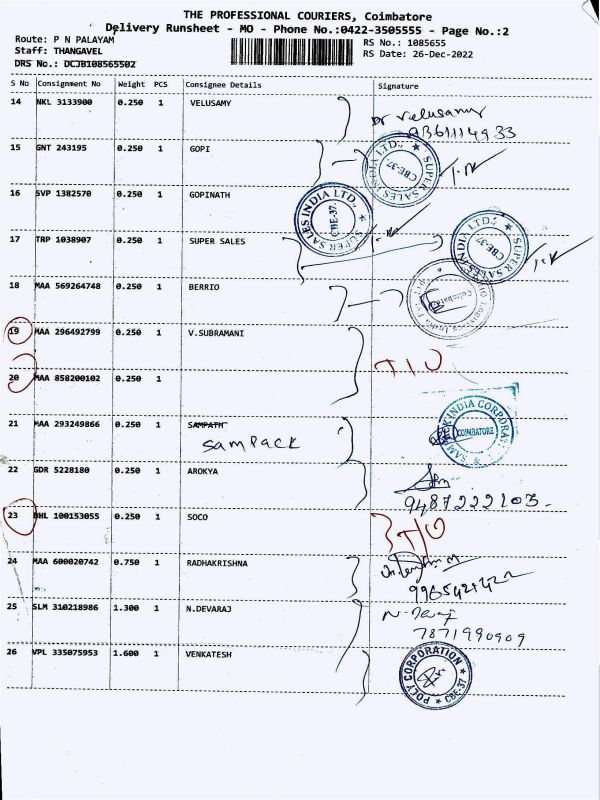 THE PROFESSIONAL COURIERS, Coimbatore
Delivery Runsheet - MO - Phone No.:0422-3505555 - Page No.:2
Route: P N PALAYAM
Staff: THANGAVEL
DRS No.: DCJB108565502
RS No.: 1085655
RS Date: 26-Dec-2022
S No Consignment No Weight PCS Consignee Details Signature
14 NKL 3133900 0.250 1 VELUSAMY
Velusamy
9361114933
15 GNT 243195 0.250 1 GOPI
SUPER SALES INDIA LTD., CBE-37.
16 SVP 1382570 0.250 1 GOPINATH
SUPER SALES INDIA LTD., CBE-37.
17 TRP 1038907 0.250 1 SUPER SALES
SUPER SALES INDIA LTD., CBE-37.
18 MAA 569264748 0.250 1 BERRIO
Coimbatore
19 MAA 296492799 0.250 1 V.SUBRAMANI
T/O
20 MAA 858200102 0.250 1
21 MAA 293249866 0.250 1 SAMPATH
samPACK
INDIA CORPORAT
COIMBATORE
22 GDR 5228180 0.250 1 AROKYA
9487222103
23 BHL 100153055 0.250 1 SOCO
T/O
24 MAA 600020742 0.750 1 RADHAKRISHNA
25 SLM 310218986 1.300 1 N.DEVARAJ
7871990909
26 VPL 335075953 1.600 1 VENKATESH
POLY CORPORATION
CBE-37